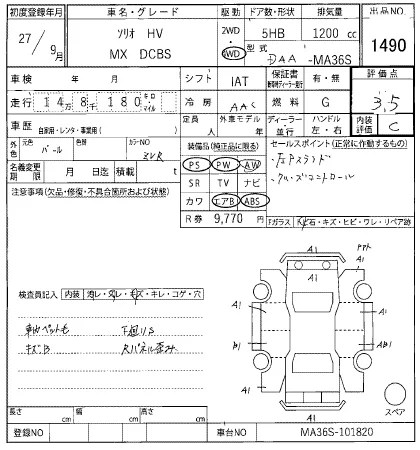 初度登録年月
27/9月
車名・グレード
ソリオ HV
MX DCBS
駆動
2WD・
4WD
ドア数・形状
5HB
排気量
1200 cc
型式
DAA-MA36S
出品NO
1490
車検 年 月
シフト
IAT
保証書
有・無
評価点
3.5
走行 14万8千180 キロ・マイル
冷房
AAC
燃料
G
車歴 自家用・レンタ・事業用( )
定員 人
外車モデル 年
ディーラー・並行
ハンドル 左・右
内装評価
C
外色
元色
パール
色替
カラーNO
ZVR
装備品(純正品に限る)
セールスポイント(正常に作動するもの)
PS PW AW
SR TV ナビ
カワ エアB ABS
R券 9,770 円
クルーズコントロール
名義変更期限 月 日迄
積載 t
注意事項(欠品・修復・不具合箇所および状態)
Fガラス
石・キズ・ヒビ・ワレ・リペア跡
検査員記入
内装
キレ・コゲ・穴
車内ペット毛 下廻りS
キズB Rパネル歪み
A1
A1
A1
A1
A1
B1
AB1
A1
A1
スペア
長さ cm
幅 cm
高さ cm
登録NO
車台NO
MA36S-101820